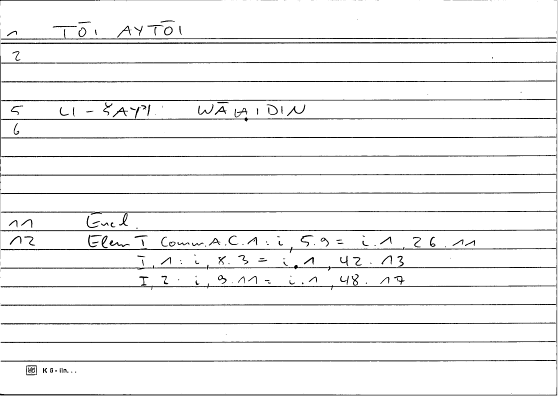 1 TŌI AYTŌI
2
5 LI-ŠAYʾI WĀḤIDIN
6
11 Eucl.
12 Elem I Comm.A.C.1: i, 5.9 = i.1, 26.11
I,1: i, 8.3 = i.1, 42.13
I,2: i, 9.11 = i.1, 48.17
K 6 - lin...